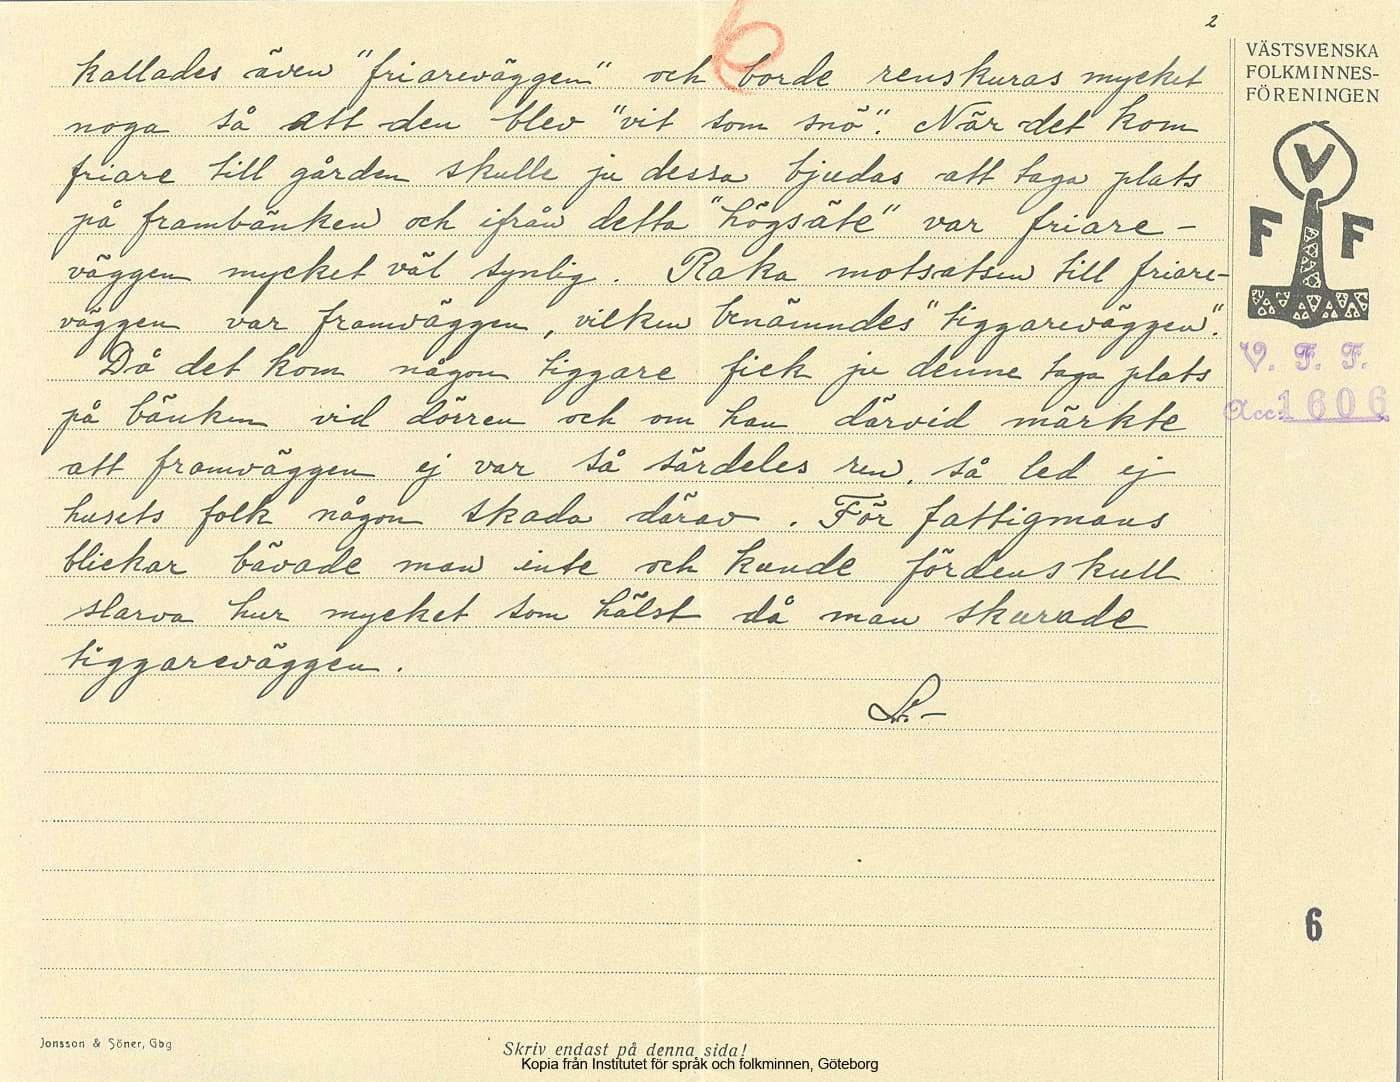 2
kallades även "friareväggen" och borde renskuras mycket
noga så att den blev "vit som snö". När det kom
friare till gården skulle ju dessa bjudas att taga plats
på frambänken och ifrån detta "högsäte" var friare-
väggen mycket väl synlig. Raka motsatsen till friare-
väggen var framväggen, vilken benämndes "tiggareväggen".
Då det kom någon tiggare fick ju denne taga plats
på bänken vid dörren och om han därvid märkte
att framväggen ej var så särdeles ren, så led ej
husets folk någon skada därav. För fattigmans
blickar bävade man inte och kunde fördenskull
slarva hur mycket som hälst då man skurade
tiggareväggen.
VÄSTSVENSKA
FOLKMINNES-
FÖRENINGEN
V
F F
V. F. F.
Acc: 1606
6
6
Jonsson & Söner, Gbg
Skriv endast på denna sida!
Kopia från Institutet för språk och folkminnen, Göteborg